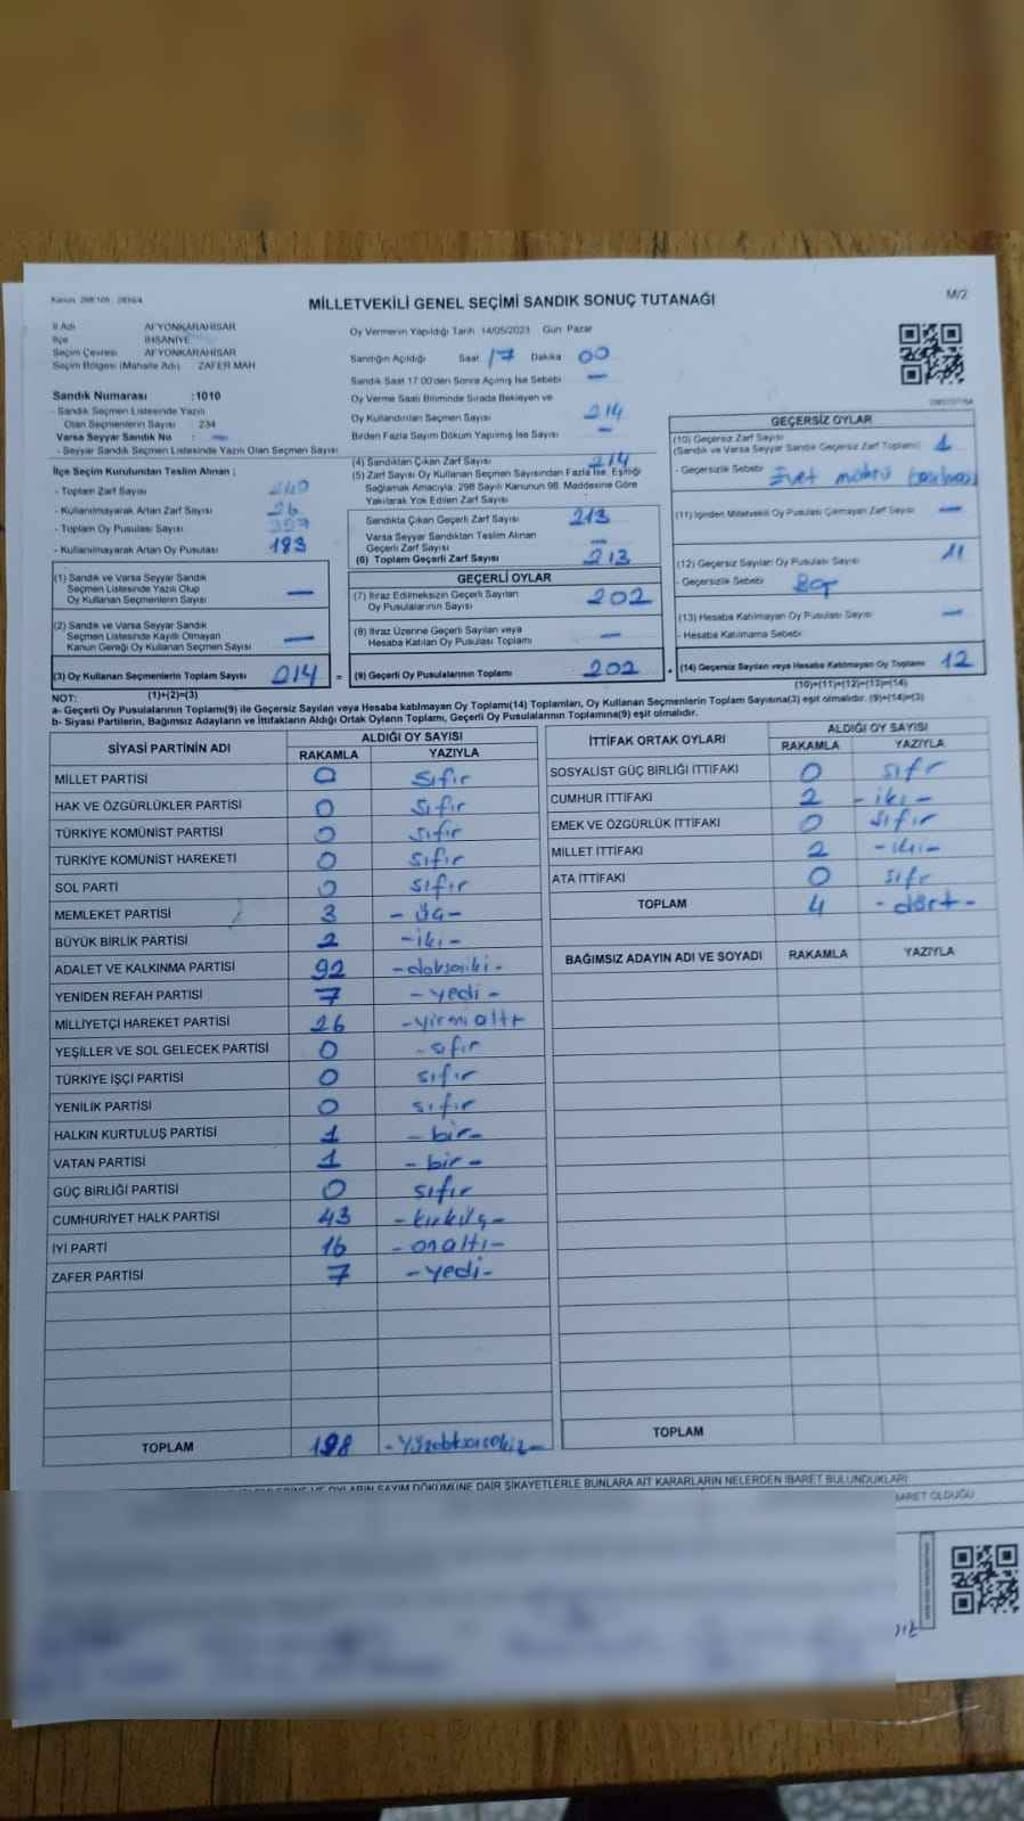 M/2
MİLLETVEKİLİ GENEL SEÇİMİ SANDIK SONUÇ TUTANAĞI
İl Adı AFYONKARAHİSAR
İlçe İHSANİYE
Seçim Çevresi AFYONKARAHİSAR
Seçim Bölgesi (Mahalle Adı) ZAFER MAH
Sandık Numarası :1010
- Sandık Seçmen Listesinde Yazılı
Olan Seçmenlerin Sayısı 234
Varsa Seyyar Sandık No : -
- Seyyar Sandık Seçmen Listesinde Yazılı Olan Seçmen Sayısı
İlçe Seçim Kurulundan Teslim Alınan ;
- Toplam Zarf Sayısı 240
- Kullanılmayarak Artan Zarf Sayısı 26
- Toplam Oy Pusulası Sayısı
- Kullanılmayarak Artan Oy Pusulası 183
(1) Sandık ve Varsa Seyyar Sandık
Seçmen Listesinde Yazılı Olup
Oy Kullanan Seçmenlerin Sayısı —
(2) Sandık ve Varsa Seyyar Sandık
Seçmen Listesinde Kayıtlı Olmayan
Kanun Gereği Oy Kullanan Seçmen Sayısı —
(3) Oy Kullanan Seçmenlerin Toplam Sayısı 214
(1)+(2)=(3)
Oy Vermenin Yapıldığı Tarih 14/05/2023 Gün Pazar
Sandığın Açıldığı Saat 17 Dakika 00
Sandık Saat 17.00'den Sonra Açılmış İse Sebebi —
Oy Verme Saati Bitiminde Sırada Bekleyen ve
Oy Kullandırılan Seçmen Sayısı 214
Birden Fazla Sayım Döküm Yapılmış İse Sayısı —
(4) Sandıktan Çıkan Zarf Sayısı 214
(5) Zarf Sayısı Oy Kullanan Seçmen Sayısından Fazla İse, Eşitliği
Sağlamak Amacıyla, 298 Sayılı Kanunun 98. Maddesine Göre
Yakılarak Yok Edilen Zarf Sayısı
Sandıkta Çıkan Geçerli Zarf Sayısı 213
Varsa Seyyar Sandıktan Teslim Alınan
Geçerli Zarf Sayısı —
(6) Toplam Geçerli Zarf Sayısı 213
GEÇERLİ OYLAR
(7) İtiraz Edilmeksizin Geçerli Sayılan
Oy Pusulalarının Sayısı 202
(8) İtiraz Üzerine Geçerli Sayılan veya
Hesaba Katılan Oy Pusulası Toplamı —
= (9) Geçerli Oy Pusulalarının Toplamı 202
GEÇERSİZ OYLAR
(10) Geçersiz Zarf Sayısı 1
(Sandık ve Varsa Seyyar Sandık Geçersiz Zarf Toplamı)
- Geçersizlik Sebebi Evet
(11) İçinden Milletvekili Oy Pusulası Çıkmayan Zarf Sayısı —
(12) Geçersiz Sayılan Oy Pusulası Sayısı 11
- Geçersizlik Sebebi
(13) Hesaba Katılmayan Oy Pusulası Sayısı —
- Hesaba Katılmama Sebebi
+ (14) Geçersiz Sayılan veya Hesaba Katılmayan Oy Toplamı 12
(10)+(11)+(12)+(13)=(14)
NOT:
a- Geçerli Oy Pusulalarının Toplamı(9) ile Geçersiz Sayılan veya Hesaba katılmayan Oy Toplamı(14) Toplamları, Oy Kullanan Seçmenlerin Toplam Sayısına(3) eşit olmalıdır. (9)+(14)=(3)
b- Siyasi Partilerin, Bağımsız Adayların ve İttifakların Aldığı Ortak Oyların Toplamı, Geçerli Oy Pusulalarının Toplamına(9) eşit olmalıdır.
SİYASİ PARTİNİN ADI ALDIĞI OY SAYISI
RAKAMLA YAZIYLA
MİLLET PARTİSİ 0 sıfır
HAK VE ÖZGÜRLÜKLER PARTİSİ 0 sıfır
TÜRKİYE KOMÜNİST PARTİSİ 0 sıfır
TÜRKİYE KOMÜNİST HAREKETİ 0 sıfır
SOL PARTİ 0 sıfır
MEMLEKET PARTİSİ 3 - üç -
BÜYÜK BİRLİK PARTİSİ 2 - iki -
ADALET VE KALKINMA PARTİSİ 92 - doksaniki -
YENİDEN REFAH PARTİSİ 7 - yedi -
MİLLİYETÇİ HAREKET PARTİSİ 26 - yirmialtı
YEŞİLLER VE SOL GELECEK PARTİSİ 0 - sıfır
TÜRKİYE İŞÇİ PARTİSİ 0 sıfır
YENİLİK PARTİSİ 0 sıfır
HALKIN KURTULUŞ PARTİSİ 1 - bir -
VATAN PARTİSİ 1 - bir -
GÜÇ BİRLİĞİ PARTİSİ 0 sıfır
CUMHURİYET HALK PARTİSİ 43 - kırküç -
İYİ PARTİ 16 - onaltı -
ZAFER PARTİSİ 7 - yedi -
TOPLAM 198
İTTİFAK ORTAK OYLARI ALDIĞI OY SAYISI
RAKAMLA YAZIYLA
SOSYALİST GÜÇ BİRLİĞİ İTTİFAKI 0 sıfır
CUMHUR İTTİFAKI 2 - iki -
EMEK VE ÖZGÜRLÜK İTTİFAKI 0 sıfır
MİLLET İTTİFAKI 2 - iki -
ATA İTTİFAKI 0 sıfır
TOPLAM 4 - dört -
BAĞIMSIZ ADAYIN ADI VE SOYADI RAKAMLA YAZIYLA
TOPLAM
VE OYLARIN SAYIM DÖKÜMÜNE DAİR ŞİKAYETLERLE BUNLARA AİT KARARLARIN NELERDEN İBARET BULUNDUKLARI
OLDUĞU